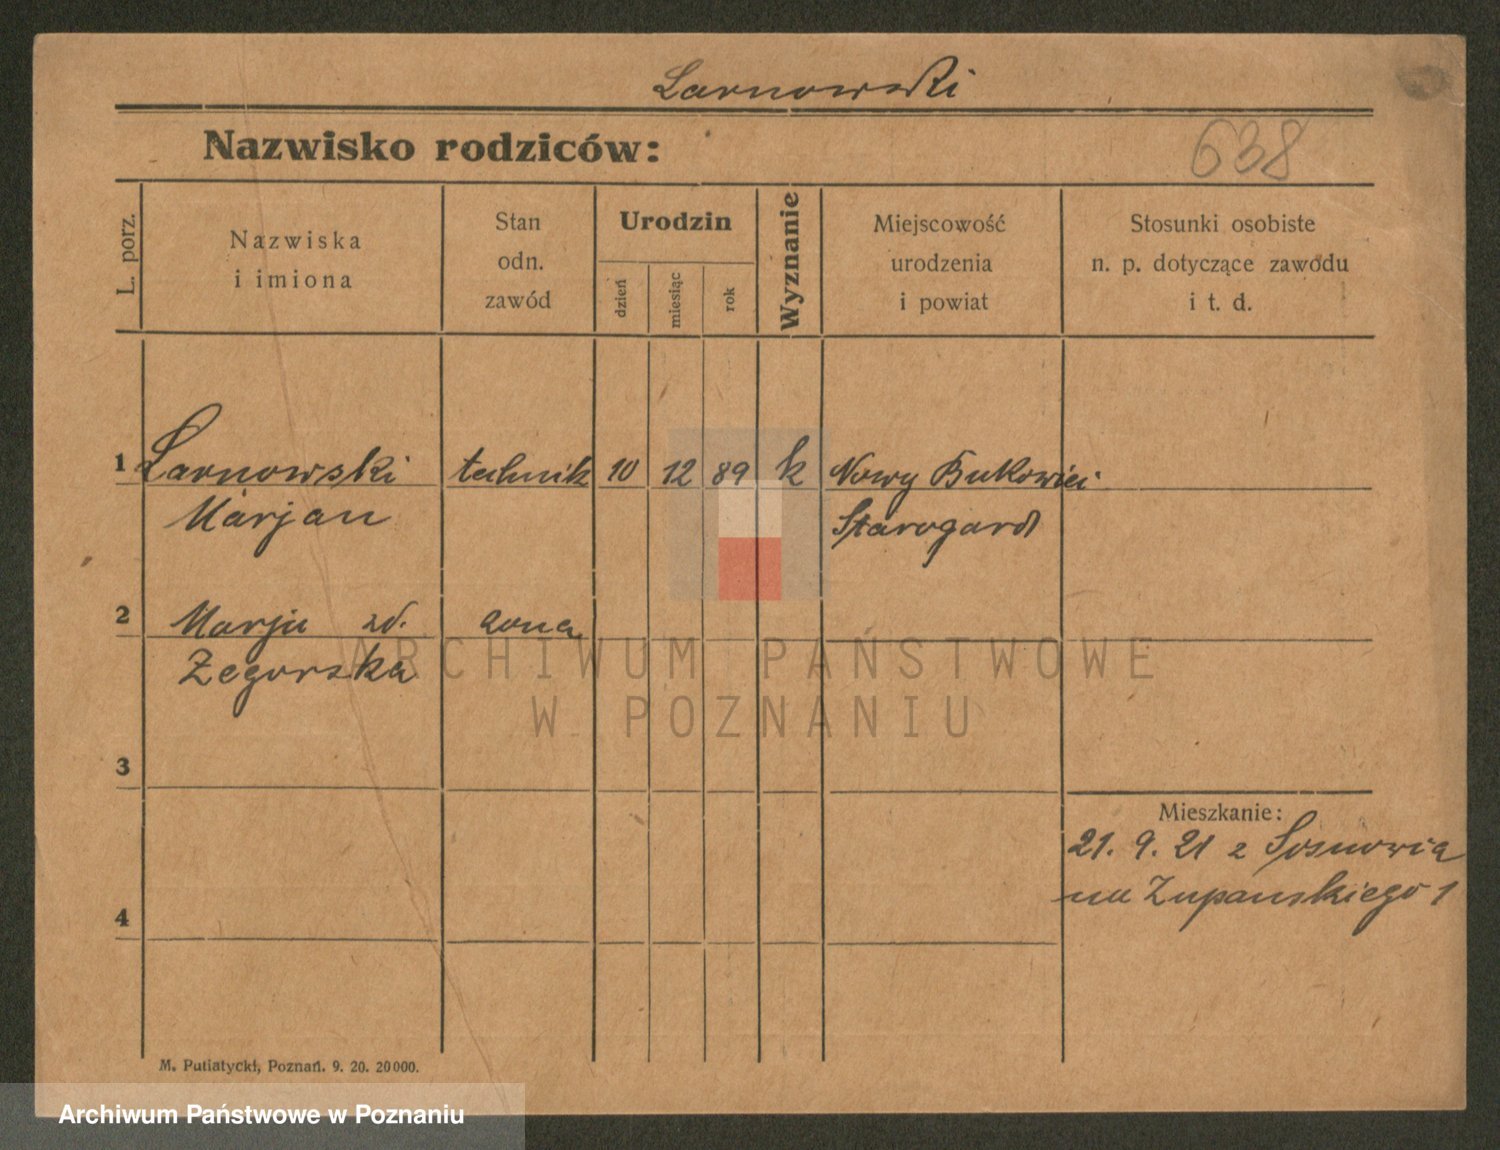 Larnowski
Nazwisko rodziców:
638
L. porz.
Nazwiska
i imiona
Stan
odn.
zawód
Urodzin
dzień
miesiąc
rok
Wyznanie
Miejscowość
urodzenia
i powiat
Stosunki osobiste
n. p. dotyczące zawodu
i t. d.
1 Larnowski technik 10 12 89 k Nowy Bukowiec
Marjan Starogard
2 Marja zd. żona
Zegorska
3
Mieszkanie:
21. 9. 21 z Sosnowca
na Zupanskiego 1
4
M. Putiatycki, Poznań. 9. 20. 20000.
ARCHIWUM PAŃSTWOWE
W POZNANIU
Archiwum Państwowe w Poznaniu